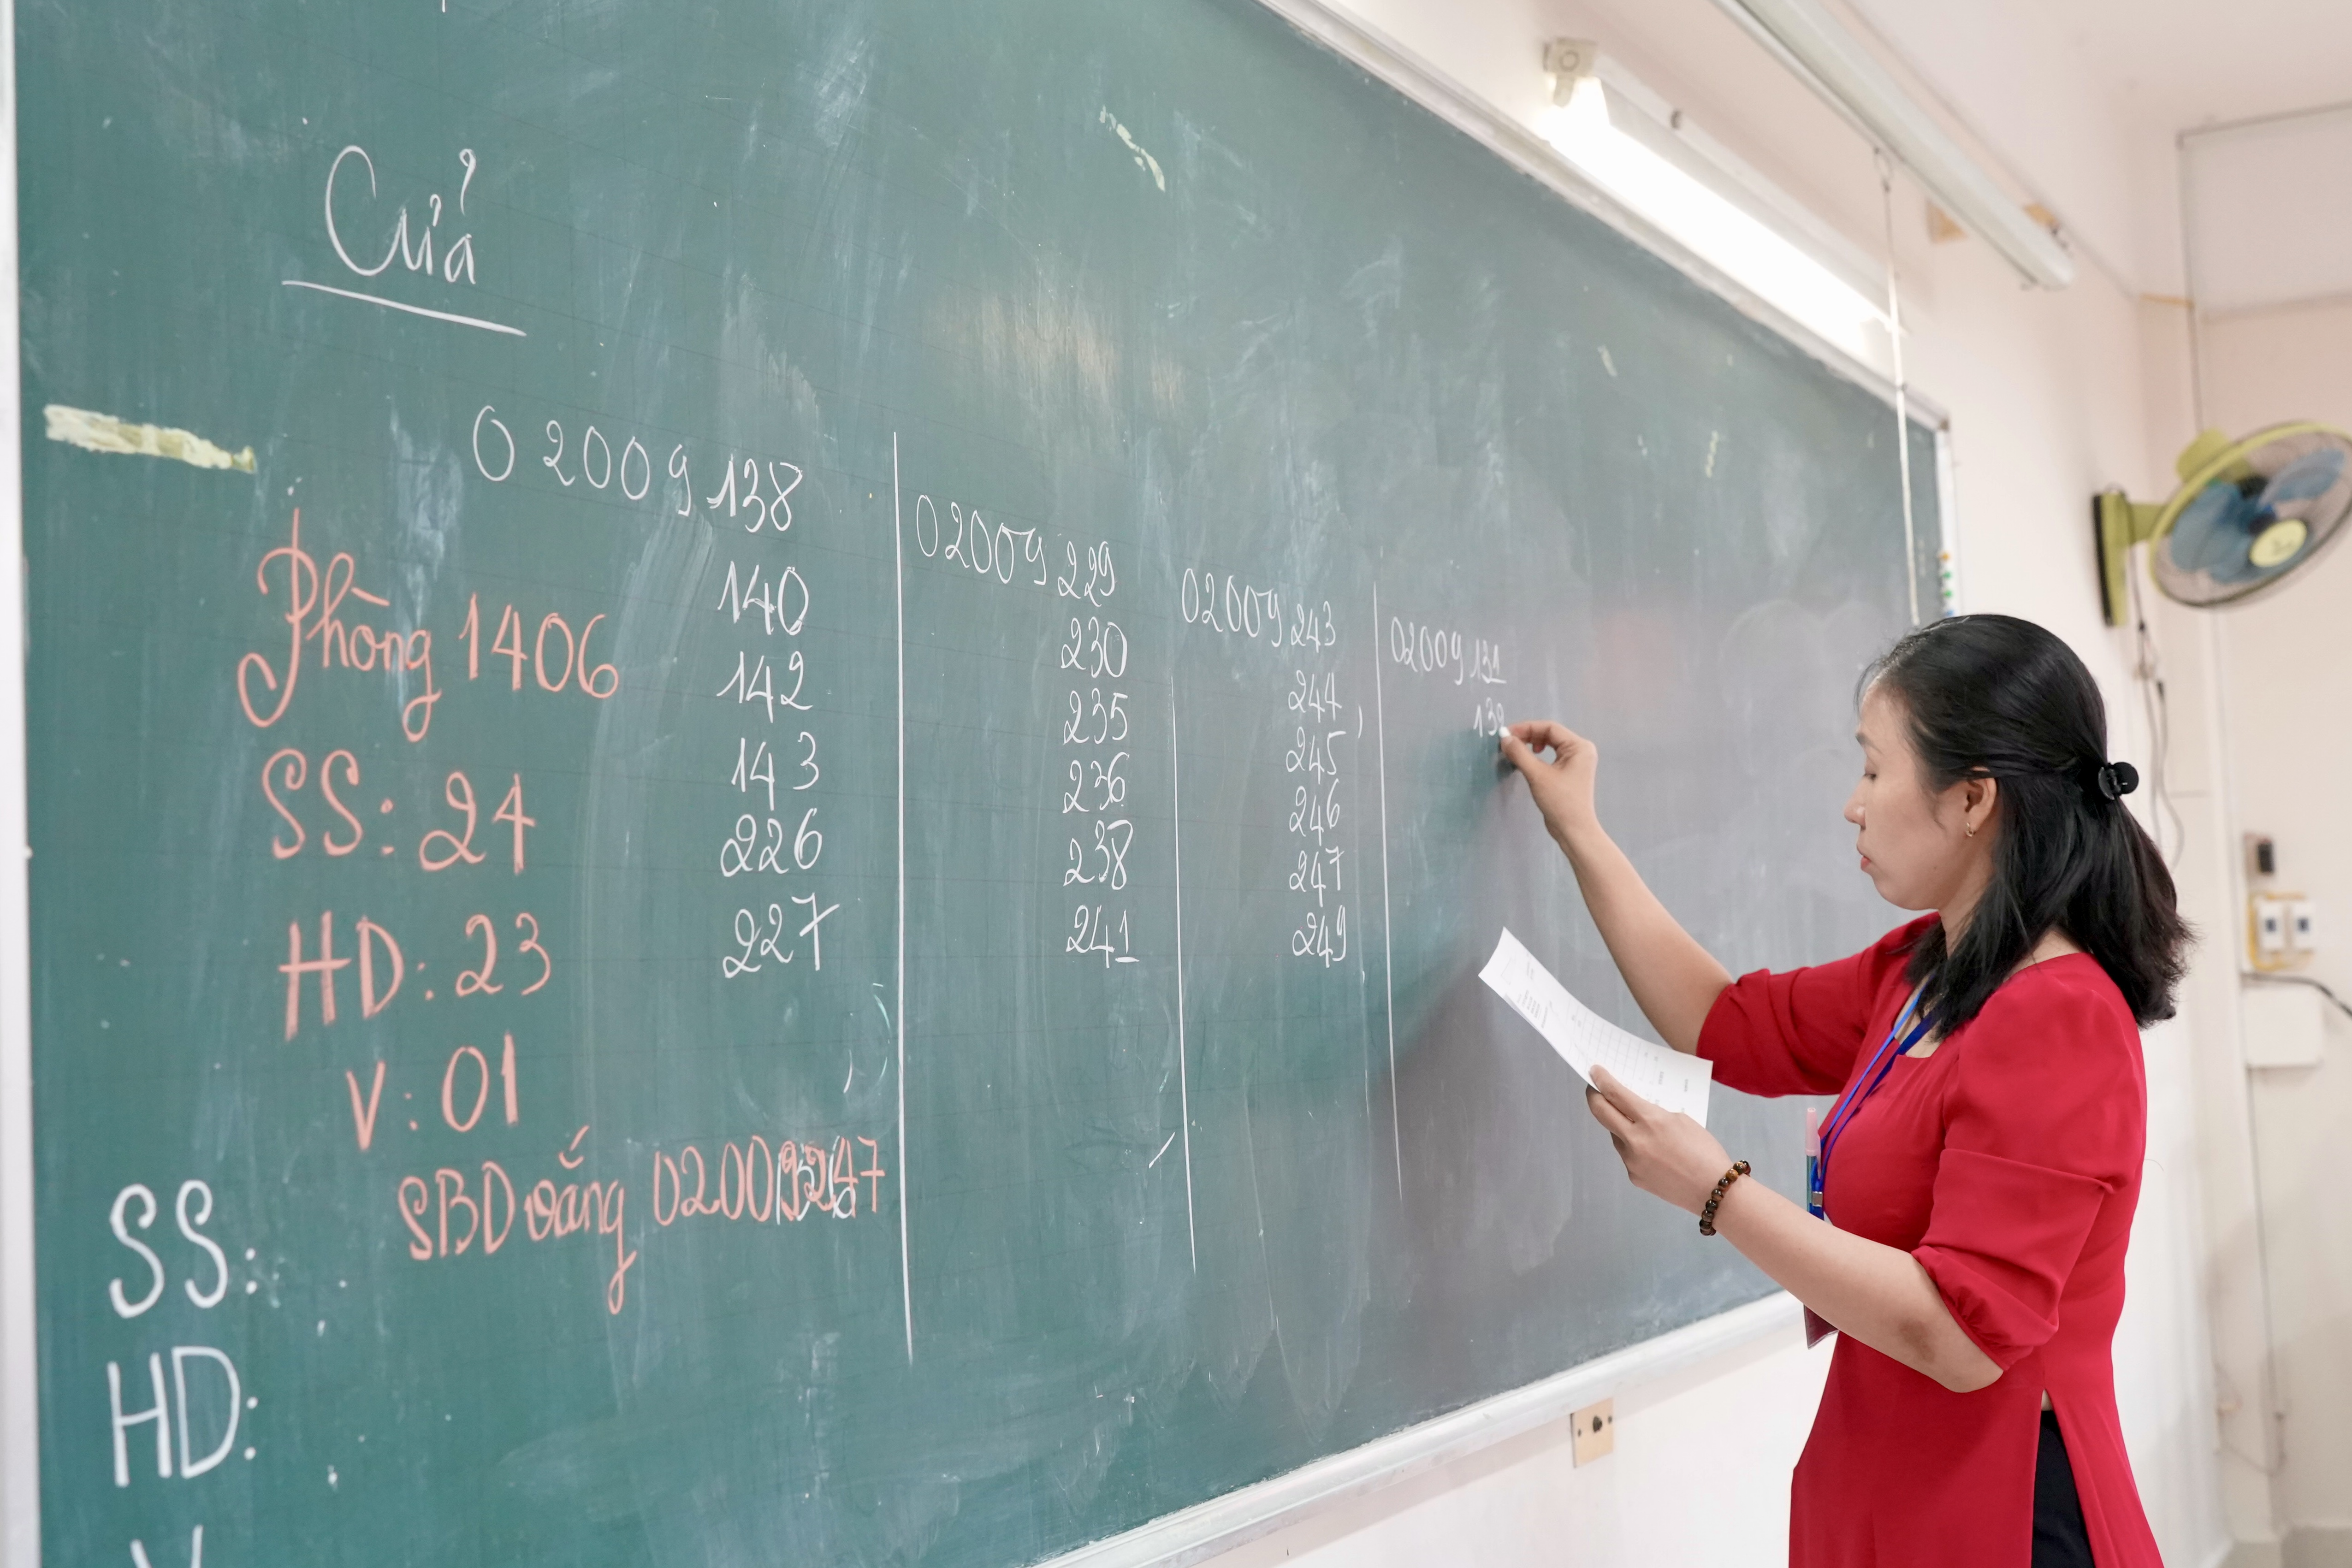 Cửa
02009138
140
142
143
226
227
02009229
230
235
236
238
241
02009243
244
245
246
247
249
02009131
Phòng 1406
SS: 24
HD: 23
V: 01
SBD vắng
SS:
HD:
V